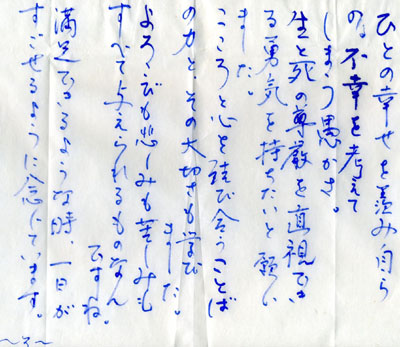 ひとの幸せを羨み自ら
の不幸を考えて
しまう愚かさ。
生と死の尊厳を直視でき
る勇気を持ちたいと願い
ました。
こころと心を結び合うことば
の力と、その大切さも学び
ました。
よろこびも悲しみも苦しみも
すべて与えられるものなん
ですね。
満足できるような時、一日が
すごせるように念じています。